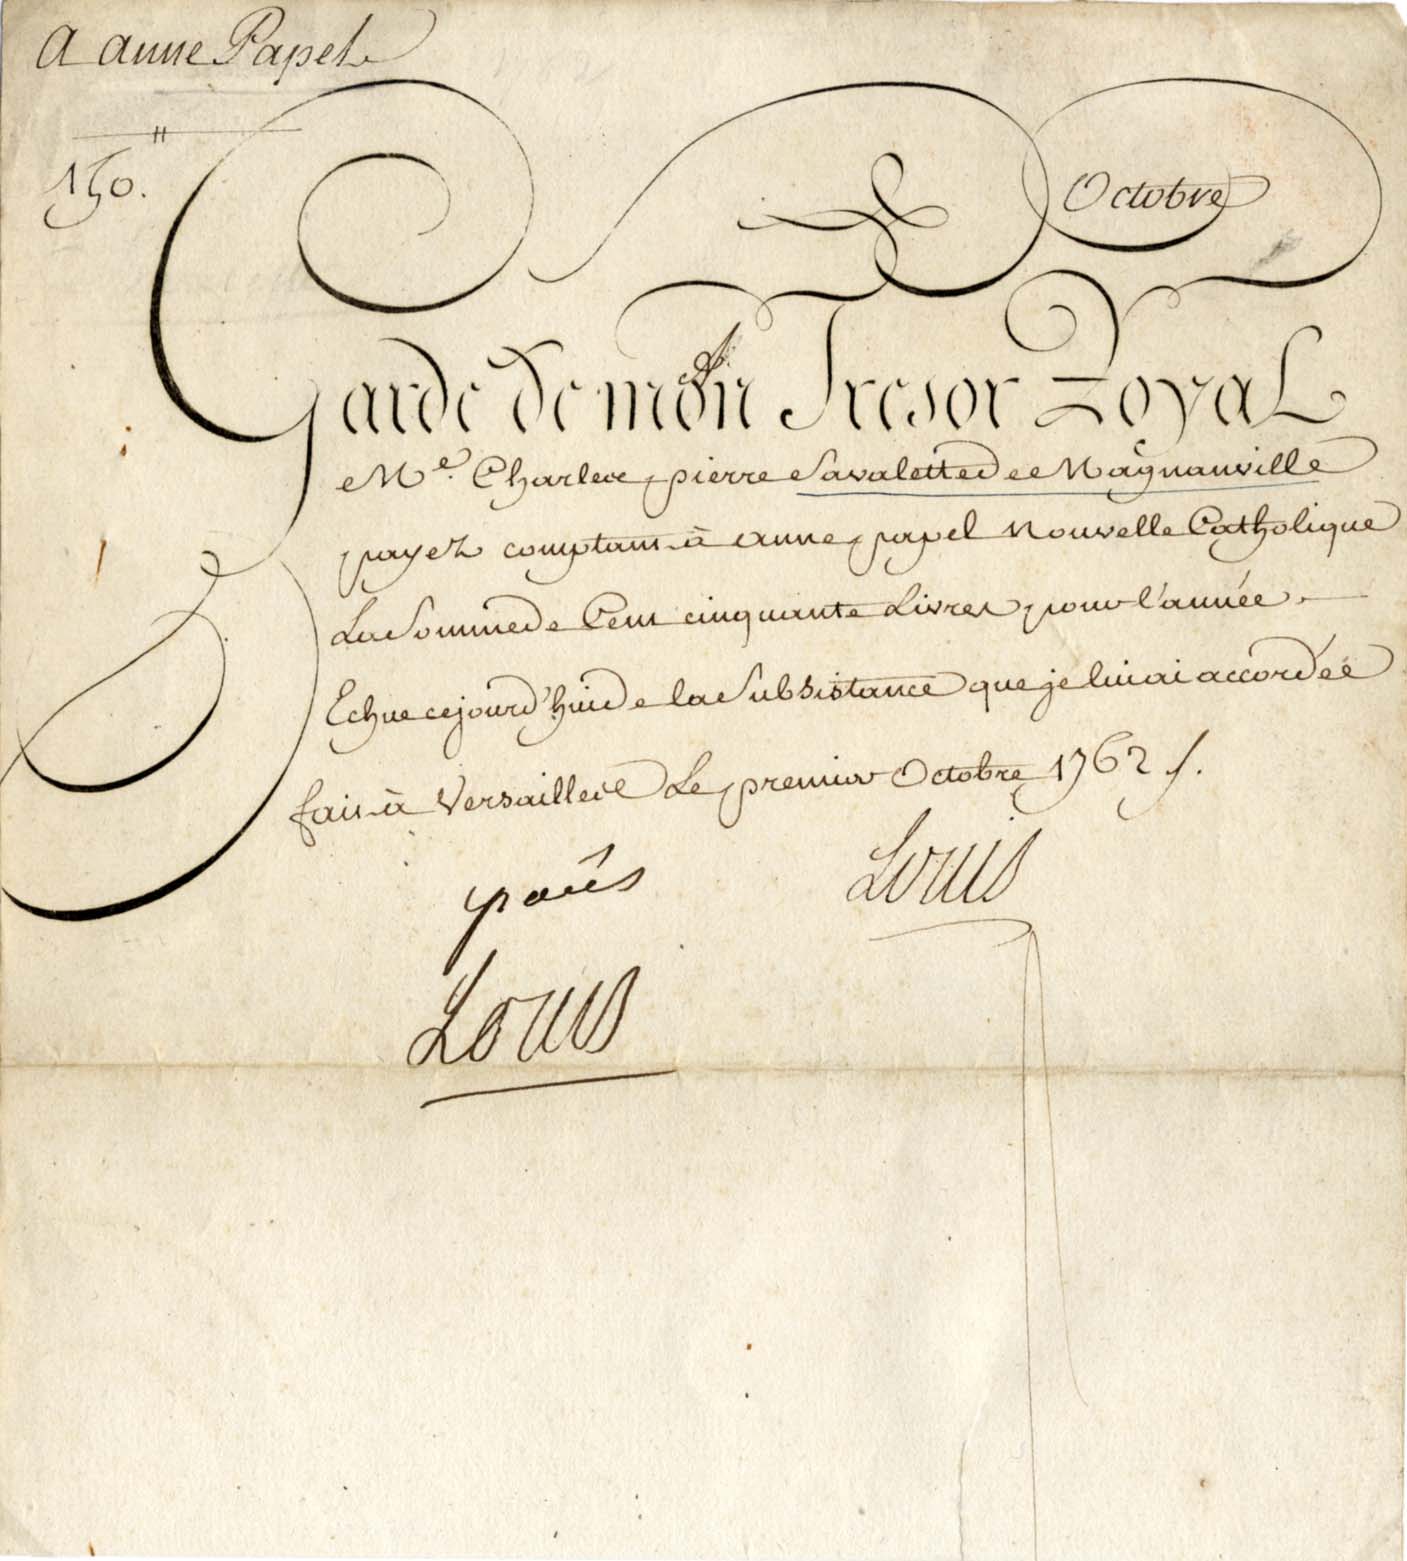 A anne Papel
150.tt
Octobre
Garde de mon Tresor Royal
Me. Charles pierre Savalette de Magnanville
payez comptant à anne papel Nouvelle Catholique
La Somme de Cent cinquante Livres pour l'année
Echue cejourd'hui de la Subsistance que je lui ai accordée
fait à Versailles Le premier Octobre 1762 /.
Louis
Louis